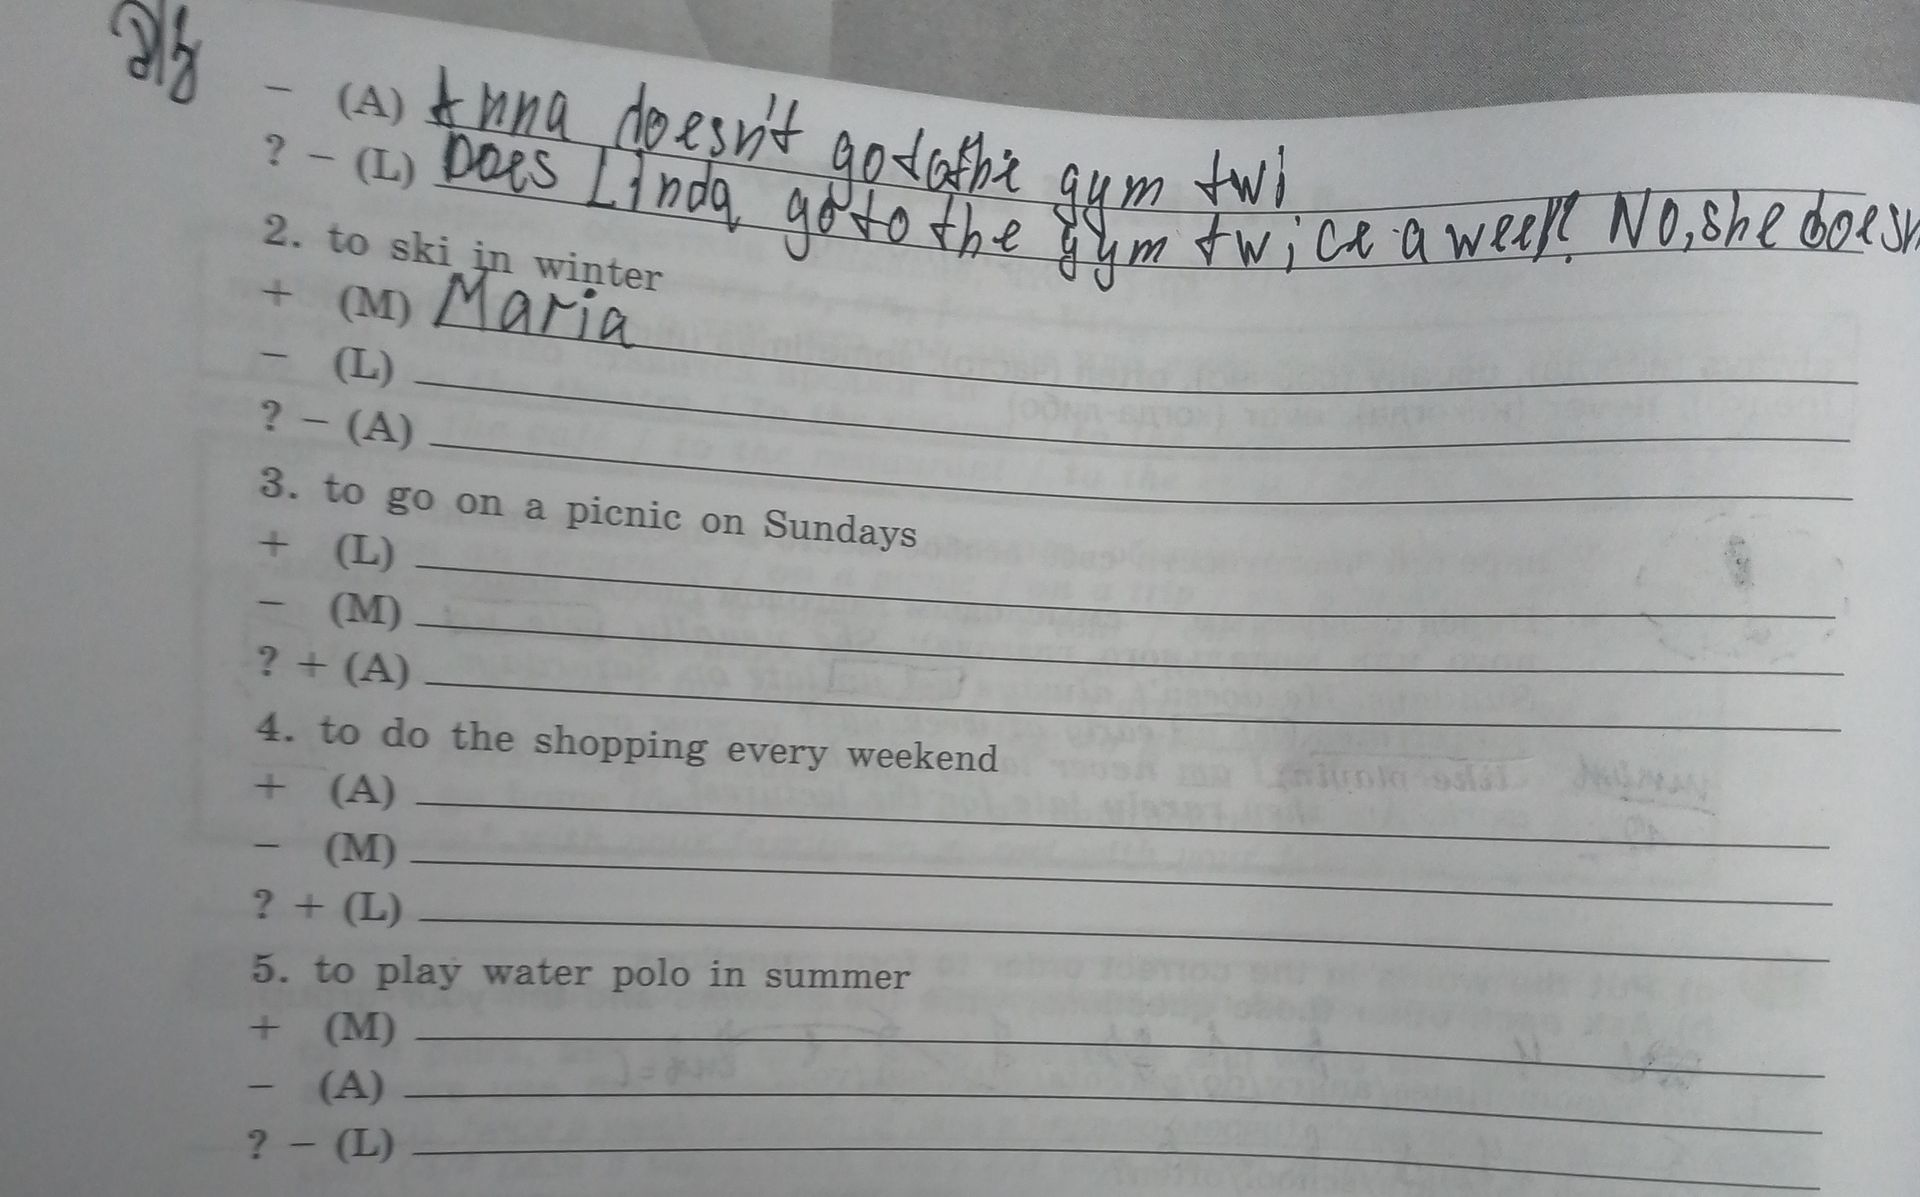 д/з
- (A) Anna doesn't go to the gym twi
? - (L) Does Linda go to the gym twice a week? No, she doesn
2. to ski in winter
+ (M) Maria
- (L)
? - (A)
3. to go on a picnic on Sundays
+ (L)
- (M)
? + (A)
4. to do the shopping every weekend
+ (A)
- (M)
? + (L)
5. to play water polo in summer
+ (M)
- (A)
? - (L)